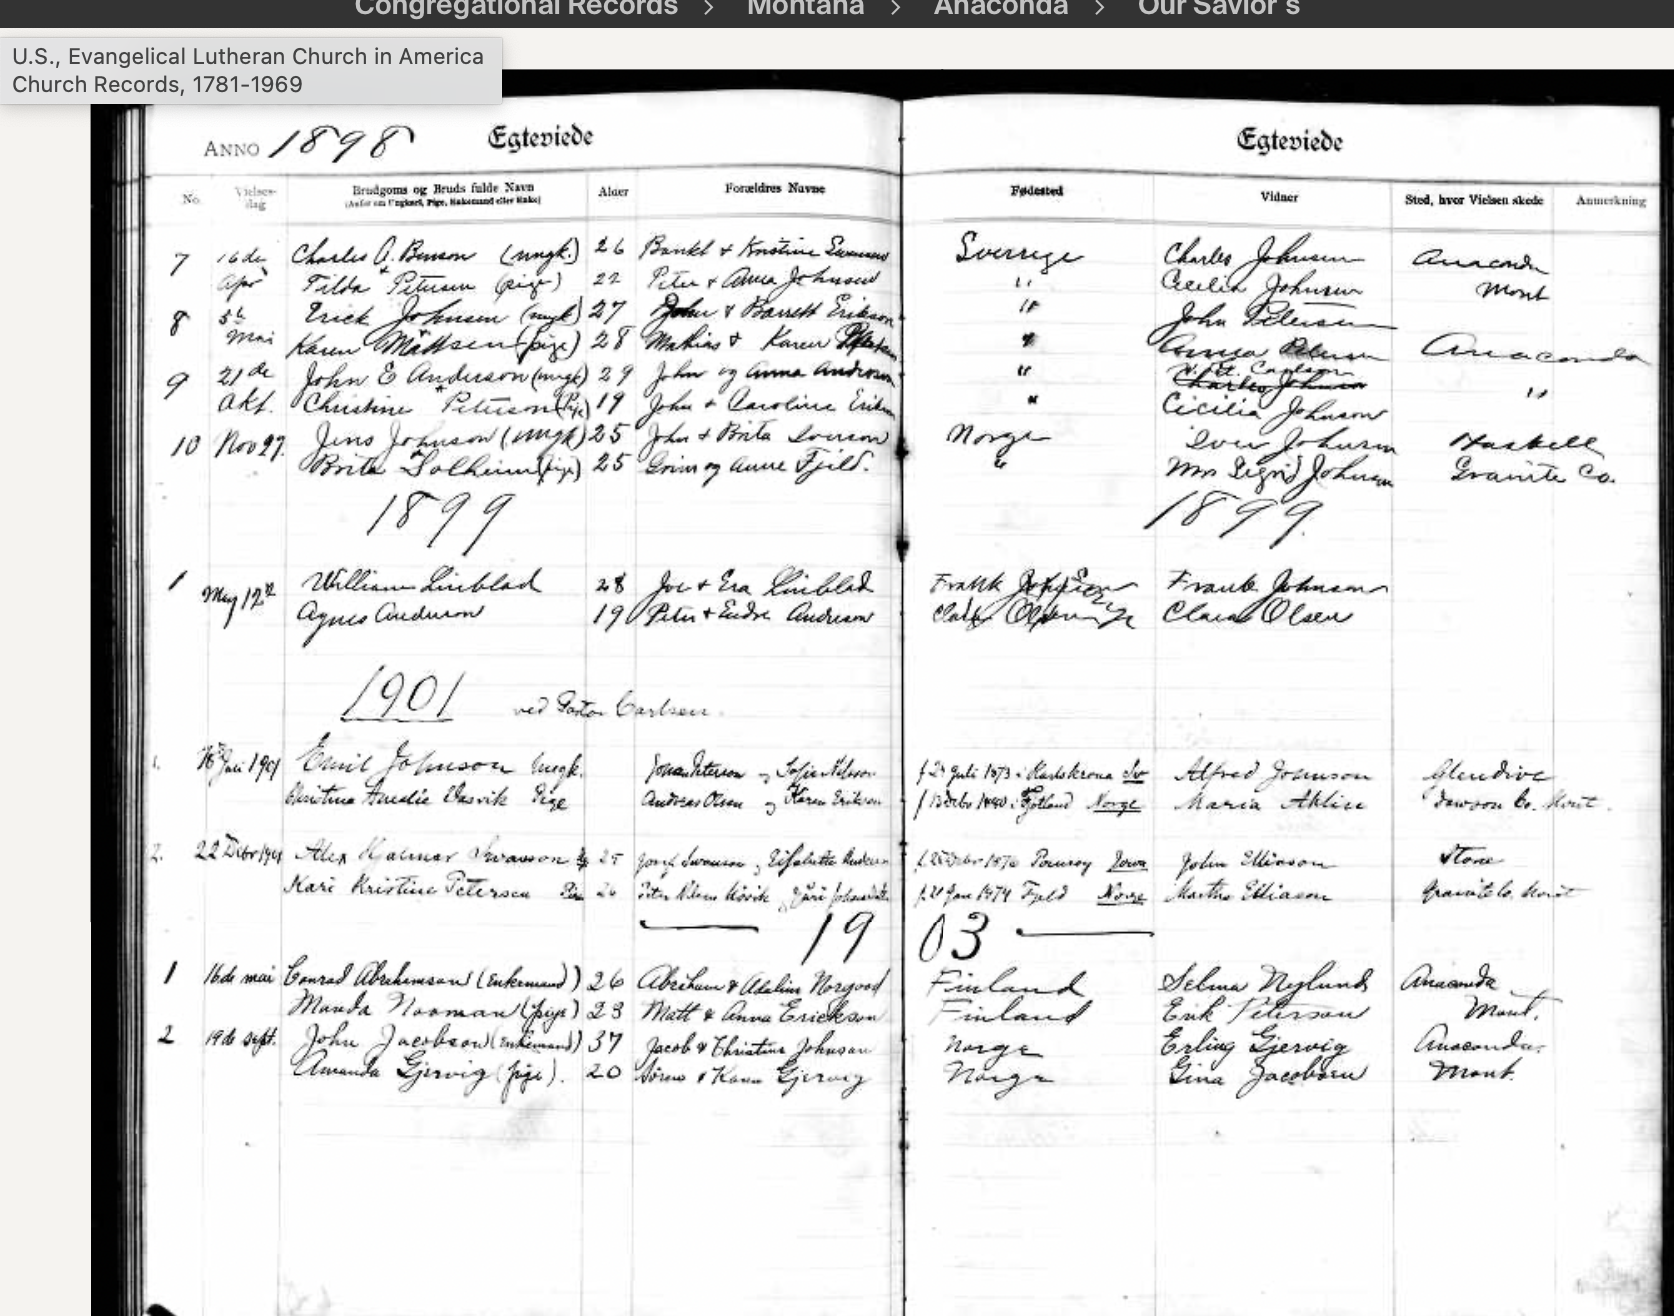 Congregational Records > Montana > Anaconda > Our Savior's
U.S., Evangelical Lutheran Church in America
Church Records, 1781-1969
ANNO 1898 Egteviede Egteviede
No. Vielses-dag Brudgoms og Bruds fulde Navn Alder Forældres Navne Fødested Vidner Sted, hvor Vielsen skede Anmerkning
(Anfør om Ungkarl, Pige, Enkemand eller Enke)
7 16de Charles A. Benson (ungk.) 26 & Kristine Sverrige Charles Johnsen Anaconda
Apr Tilda Petersen (pige) 22 Peter & Anna Johnsen " Cecilia Johnsen Mont
8 5te Erick Johnsen (ungk) 27 John & Barrett Erikson " John Petersen
Mai Karen Mattsen (pige) 28 Mathias & Karen " Petersen Anaconda
9 21de John E Anderson (ungk) 29 John og Anna Anderson " Carlson
Charles Johnson "
Okt. Christine Peterson (Pige) 19 John & Caroline Erikson " Cicilia Johnson
10 Nov 27. Jens Johnson (ungk) 25 John & Brita Iverson Norge Iver Johnson Haskell
Brita Solheim (pige) 25 og Anne Fjeld. " Mrs Sigrid Johnson Granite Co.
1899 1899.
1 May 12th William Linblad 28 Joe & Eva Linblad Frank Frank Johnson
Agnes Anderson 19 Peter & Anderson Claus Olsen
1901 ved Pastor Carlsen.
1. Juli 1901 Emil Johnson Ungk. Johan Peterson og Sofie Nilsson f. Juli 1873 i Karlskrona Sv Alfred Johnson Glendive
Christina Amalie Vasvik Pige Andreas Olsen og Karen Erikson Norge Maria Ahlin Dawson Co. Mont.
2. 22 Decbr 1901 Alex Hjalmar Swanson 25 Josef Swanson, Elisabette Iowa John Elliason Stone
Kari Kristine Petersen Pige 26 Peter f. 21 Jan 1874 Fjeld Norge Martha Elliason Granite Co. Mont
1903
1 16de mai Conrad Abrahamson (Enkemand) 26 Abraham & Adalina Norgood Finland Selma Nylund Anaconda
Manda Nooman (pige) 23 Matt & Anna Erickson Finland Erik Peterson Mont.
2 19de sept. John Jacobson (Enkemand) 37 Jacob & Christina Johnson Norge Erling Gjervig Anaconda.
Amanda Gjervig (pige). 20 Sören & Karen Gjervig Norge Gina Jacobsen Mont.